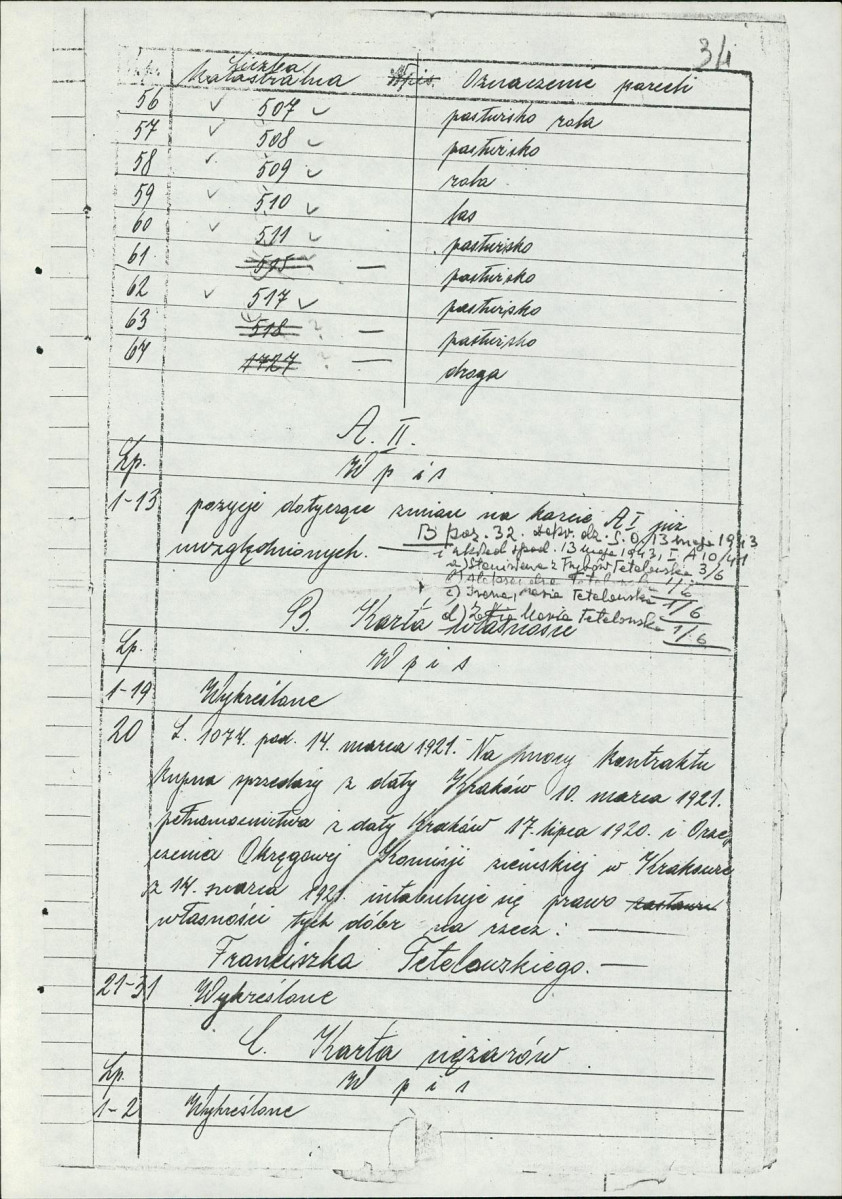 34
Lp. Liczba katastralna Wpis. Oznaczenie parceli
56 507 pastwisko rola
57 508 pastwisko
58 509 rola
59 510 las
60 511 pastwisko
61 515 — pastwisko
62 517 pastwisko
63 518 ? — pastwisko
64 1727 ? — droga
A. II.
Lp. Wpis
1-13 pozycje dotyczące zmian na karcie A I już
uwzględnionych. —
B poz. 32. dz. 13 maja 1943
i spad. 13 maja 1943, I A 10/41
a) Stanisława z Tetelowska 3/6
b) Aleksandra Tetelowska 1/6
c) Irena, Maria Tetelowska 1/6
d) Zofia Maria Tetelowska 1/6
B. Karta własności
Lp. Wpis
1-19 Wykreślone
20 L. 1074. pod. 14. marca 1921. Na mocy kontraktu
kupna sprzedaży z daty Kraków 10. marca 1921.
pełnomocnictwa z daty Kraków 17. lipca 1920. i Orze-
czenia Okręgowej Komisji ziemskiej w Krakowie
z 14. marca 1921. intabuluje się prawo zastawu
własności tych dóbr na rzecz: —
Franciszka Tetelowskiego. —
21-31 Wykreślone
C. Karta ciężarów
Lp. Wpis
1-2 Wykreślone